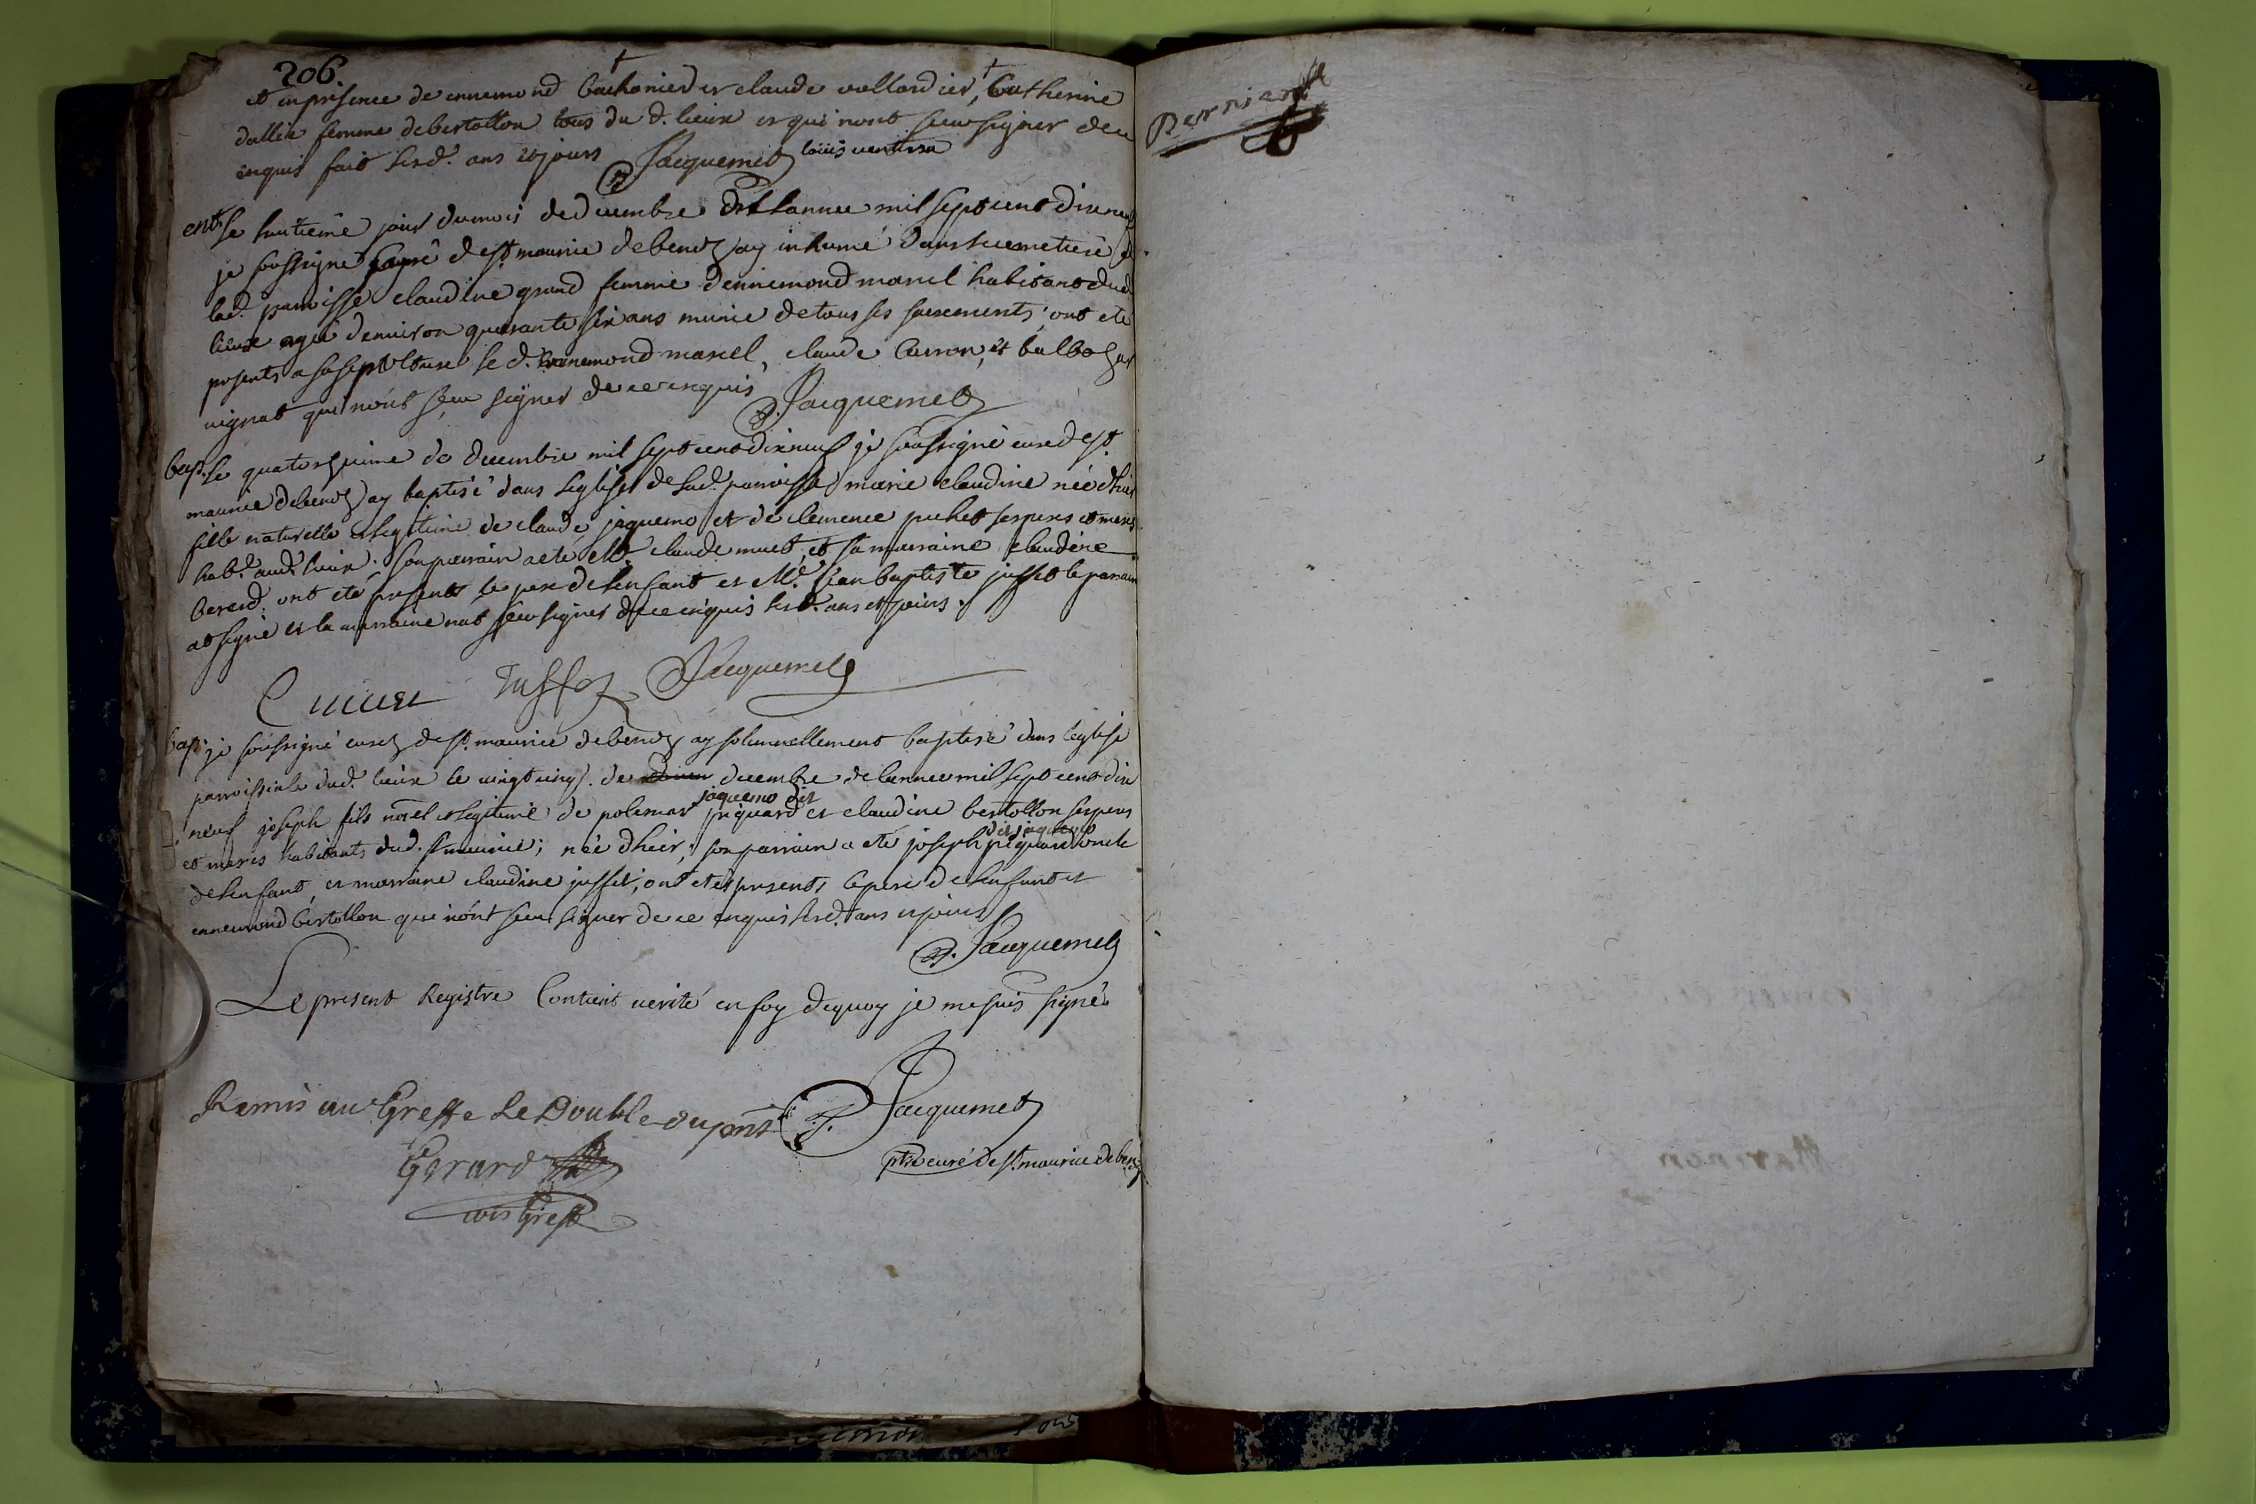 206.
et en présence de ennemond bachonier et claude vollardier, Catherine
dallia femme de bertollon tous du d. lieux et qui nont sceu signer de ce
enquis fait lesd. ans et jours Jacquemet louis ventura
entt le huitieme jour du mois de decembre de lannee mil sept cent dix neuf
je soussigné curé de st maurice de benoz ay inhumé dans le cemetiere de
lad. paroisse claudine grand femme dennemond marcel habitant dud.
lieux agée denuiron quarante six ans munie de tous ses sacrements; ont eté
presents a sa sepulture le d. Ennemond marcel, claude Carron, et balthazar
vignat qui nont sceu signer de ce enquis Jacquemet
bap. le quatorzieme de decembre mil sept cent dix neuf je soussigné curé de st.
maurice de benoz ay baptisé dans leglise de lad. parroisse marie claudine née dhier
fille naturelle et legitime de claude jaquemo et de clemence puchet ses peres et meres
hab.t aud. lieux. son parrain a eté Mr. claude muet, et sa marraine claudine
berard. ont eté presents le pere de lenfant et Mr. jean baptiste jusset le parrain
at signé et la marraine nat sceu signer de ce enquis lesd. ans et jours.
C muet Jusset Jacquemet
bap. je soussigné curé de st. maurice de benoz ay solennellement baptisé dans leglise
parroissiale dud. lieux le vingt cinq de decembre de lannee mil sept cent dix
jaquemo dit
neuf joseph fils nâel et legitime de polemar piquard et claudine bertollon ses peres
dit jaquemo
et meres habitants dud. st maurice; née dhier; son parrain a eté joseph piquard oncle
de lenfant, et marraine claudine jusset; ont etés presents le pere de lenfant et
ennemond bertollon qui nont sceu signer de ce enquis lesd. ans et jours
Jacquemet
Le present Registre Contient verité en foy dequoy je me suis signé
Jacquemet
Remis au Greffe Le Double du pnt
ptre curé de st. maurice de benoz
Gerard
com Greff